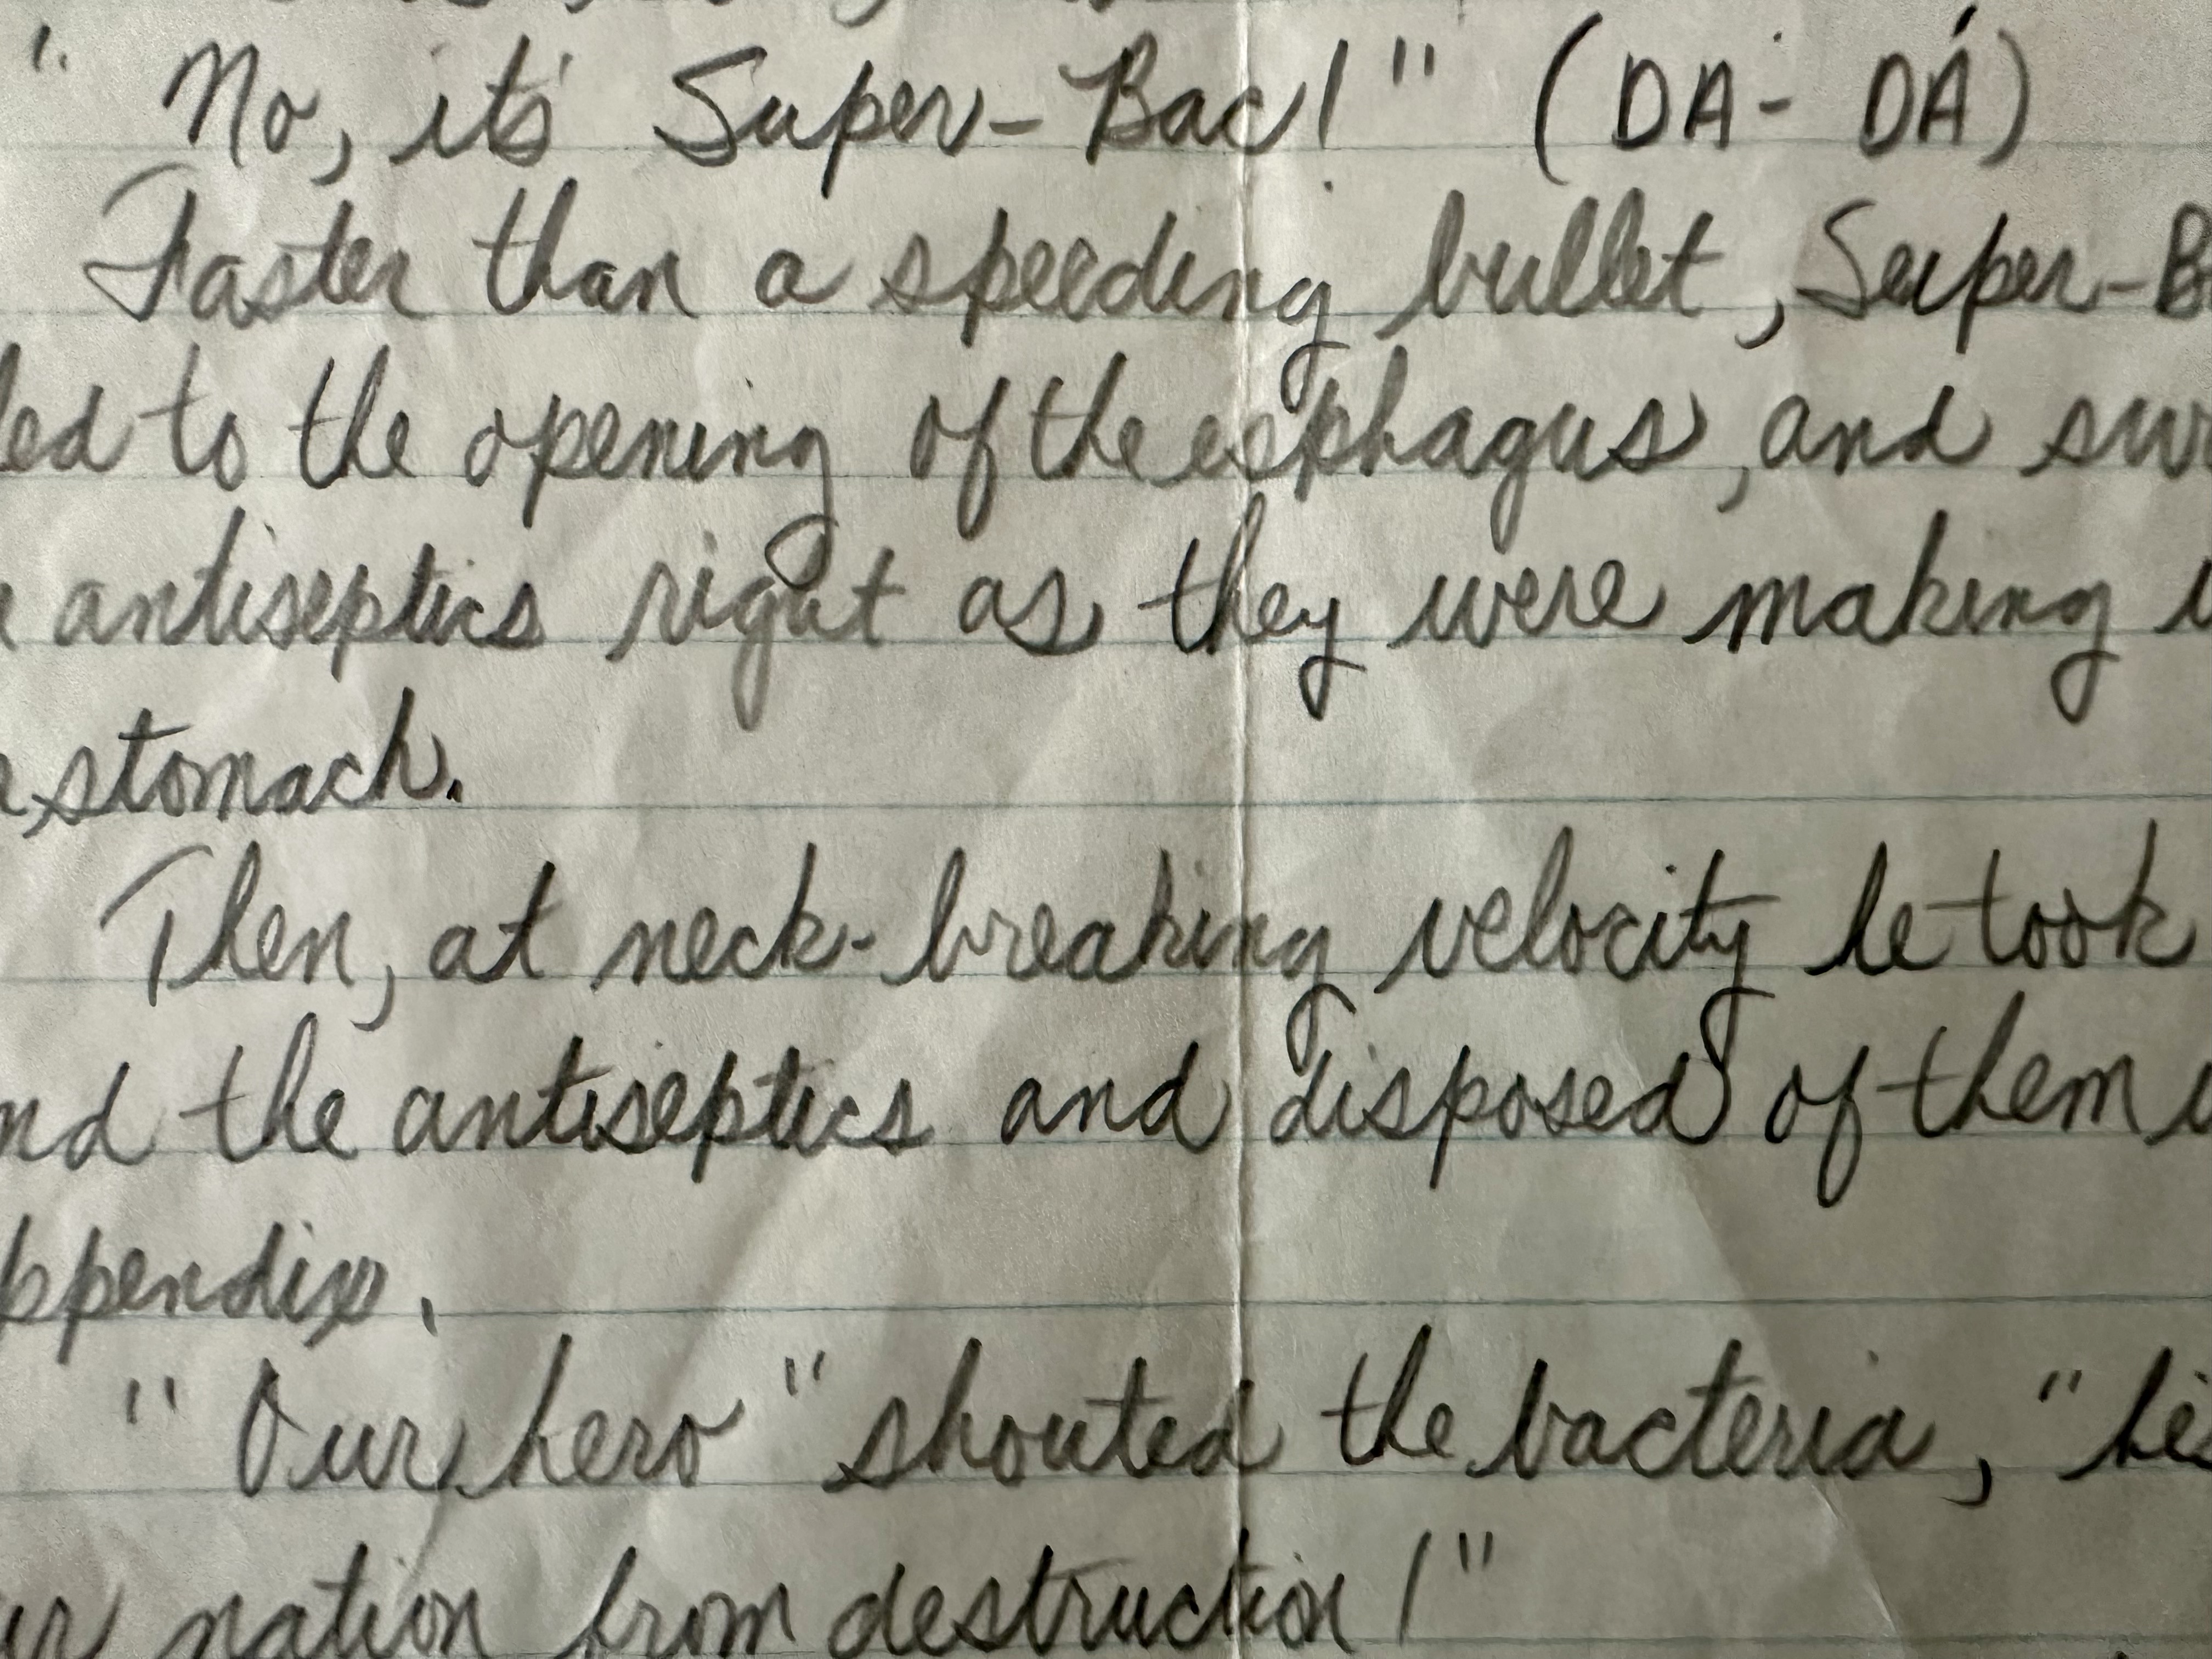 " No, it's Super-Bac!" (DA- DÁ)
Faster than a speeding bullet, Super-B
led to the opening of the esphagus, and sur
antiseptics right as they were making
stomach.
Then, at neck-breaking velocity he took
nd the antiseptics and disposed of them
ppendix.
"Our hero" shouted the bacteria, "he's
ur nation from destruction!"